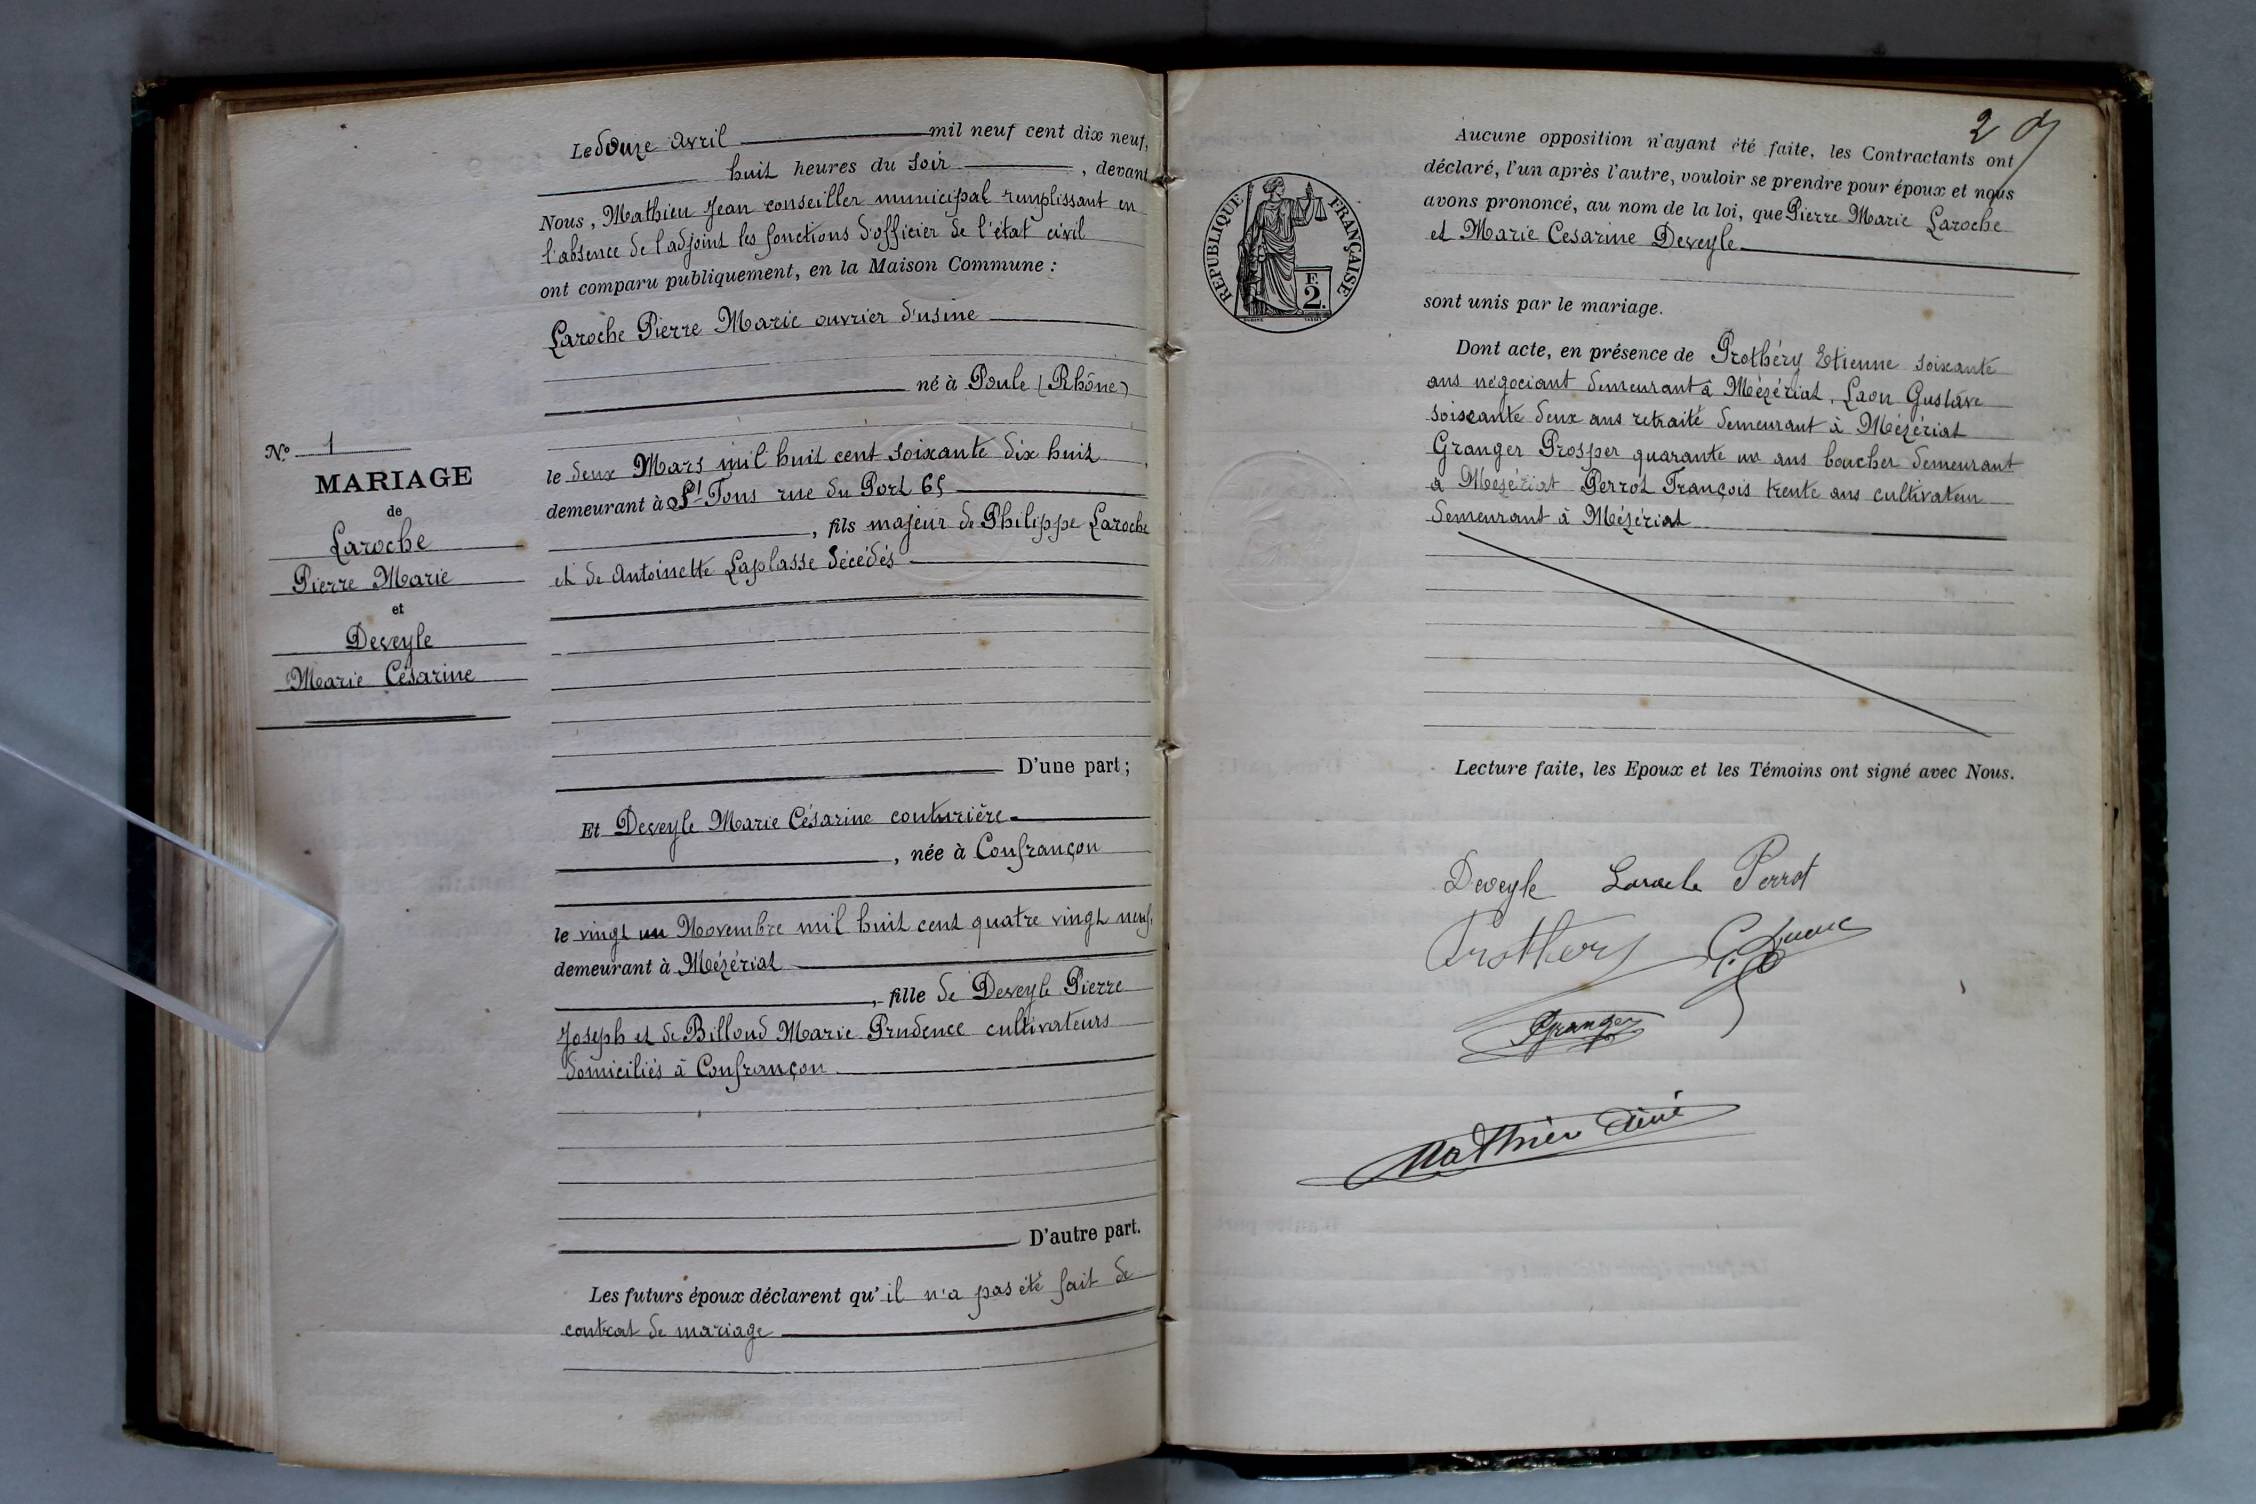 Le douze Avril mil neuf cent dix neuf,
huit heures du soir, devant
Nous, Mathieu Jean conseiller municipal remplissant en
l'absence de l'adjoint les fonctions d'officier de l'état civil
ont comparu publiquement, en la Maison Commune :
Laroche Pierre Marie ouvrier d'usine
né à Poule (Rhône)
le deux Mars mil huit cent soixante dix huit
demeurant à St Fons rue du Port 65
, fils majeur de Philippe Laroche
et de Antoinette Laplasse décédés
D'une part ;
Et Deveyle Marie Césarine couturière
, née à Confrançon
le vingt un Novembre mil huit cent quatre vingt neuf,
demeurant à Mézériat
, fille de Deveyle Pierre
Joseph et de Billoud Marie Prudence cultivateurs
domiciliés à Confrançon
D'autre part.
Les futurs époux déclarent qu'il n'a pas été fait de
contrat de mariage
No 1
MARIAGE
de
Laroche
Pierre Marie
et
Deveyle
Marie Césarine
2
REPUBLIQUE FRANÇAISE
F.
2.
Aucune opposition n'ayant été faite, les Contractants ont
déclaré, l'un après l'autre, vouloir se prendre pour époux et nous
avons prononcé, au nom de la loi, que Pierre Marie Laroche
et Marie Cesarine Deveyle
sont unis par le mariage.
Dont acte, en présence de Prothéry Etienne soixante
ans négociant demeurant à Mézériat, Gustave
soixante deux ans retraité demeurant à Mézériat
Granger Prosper quarante un ans boucher demeurant
à Mézériat Perrot François trente ans cultivateur
demeurant à Mézériat
Lecture faite, les Epoux et les Témoins ont signé avec Nous.
Deveyle Laroche Perrot
Prothery
Granger
Mathieu